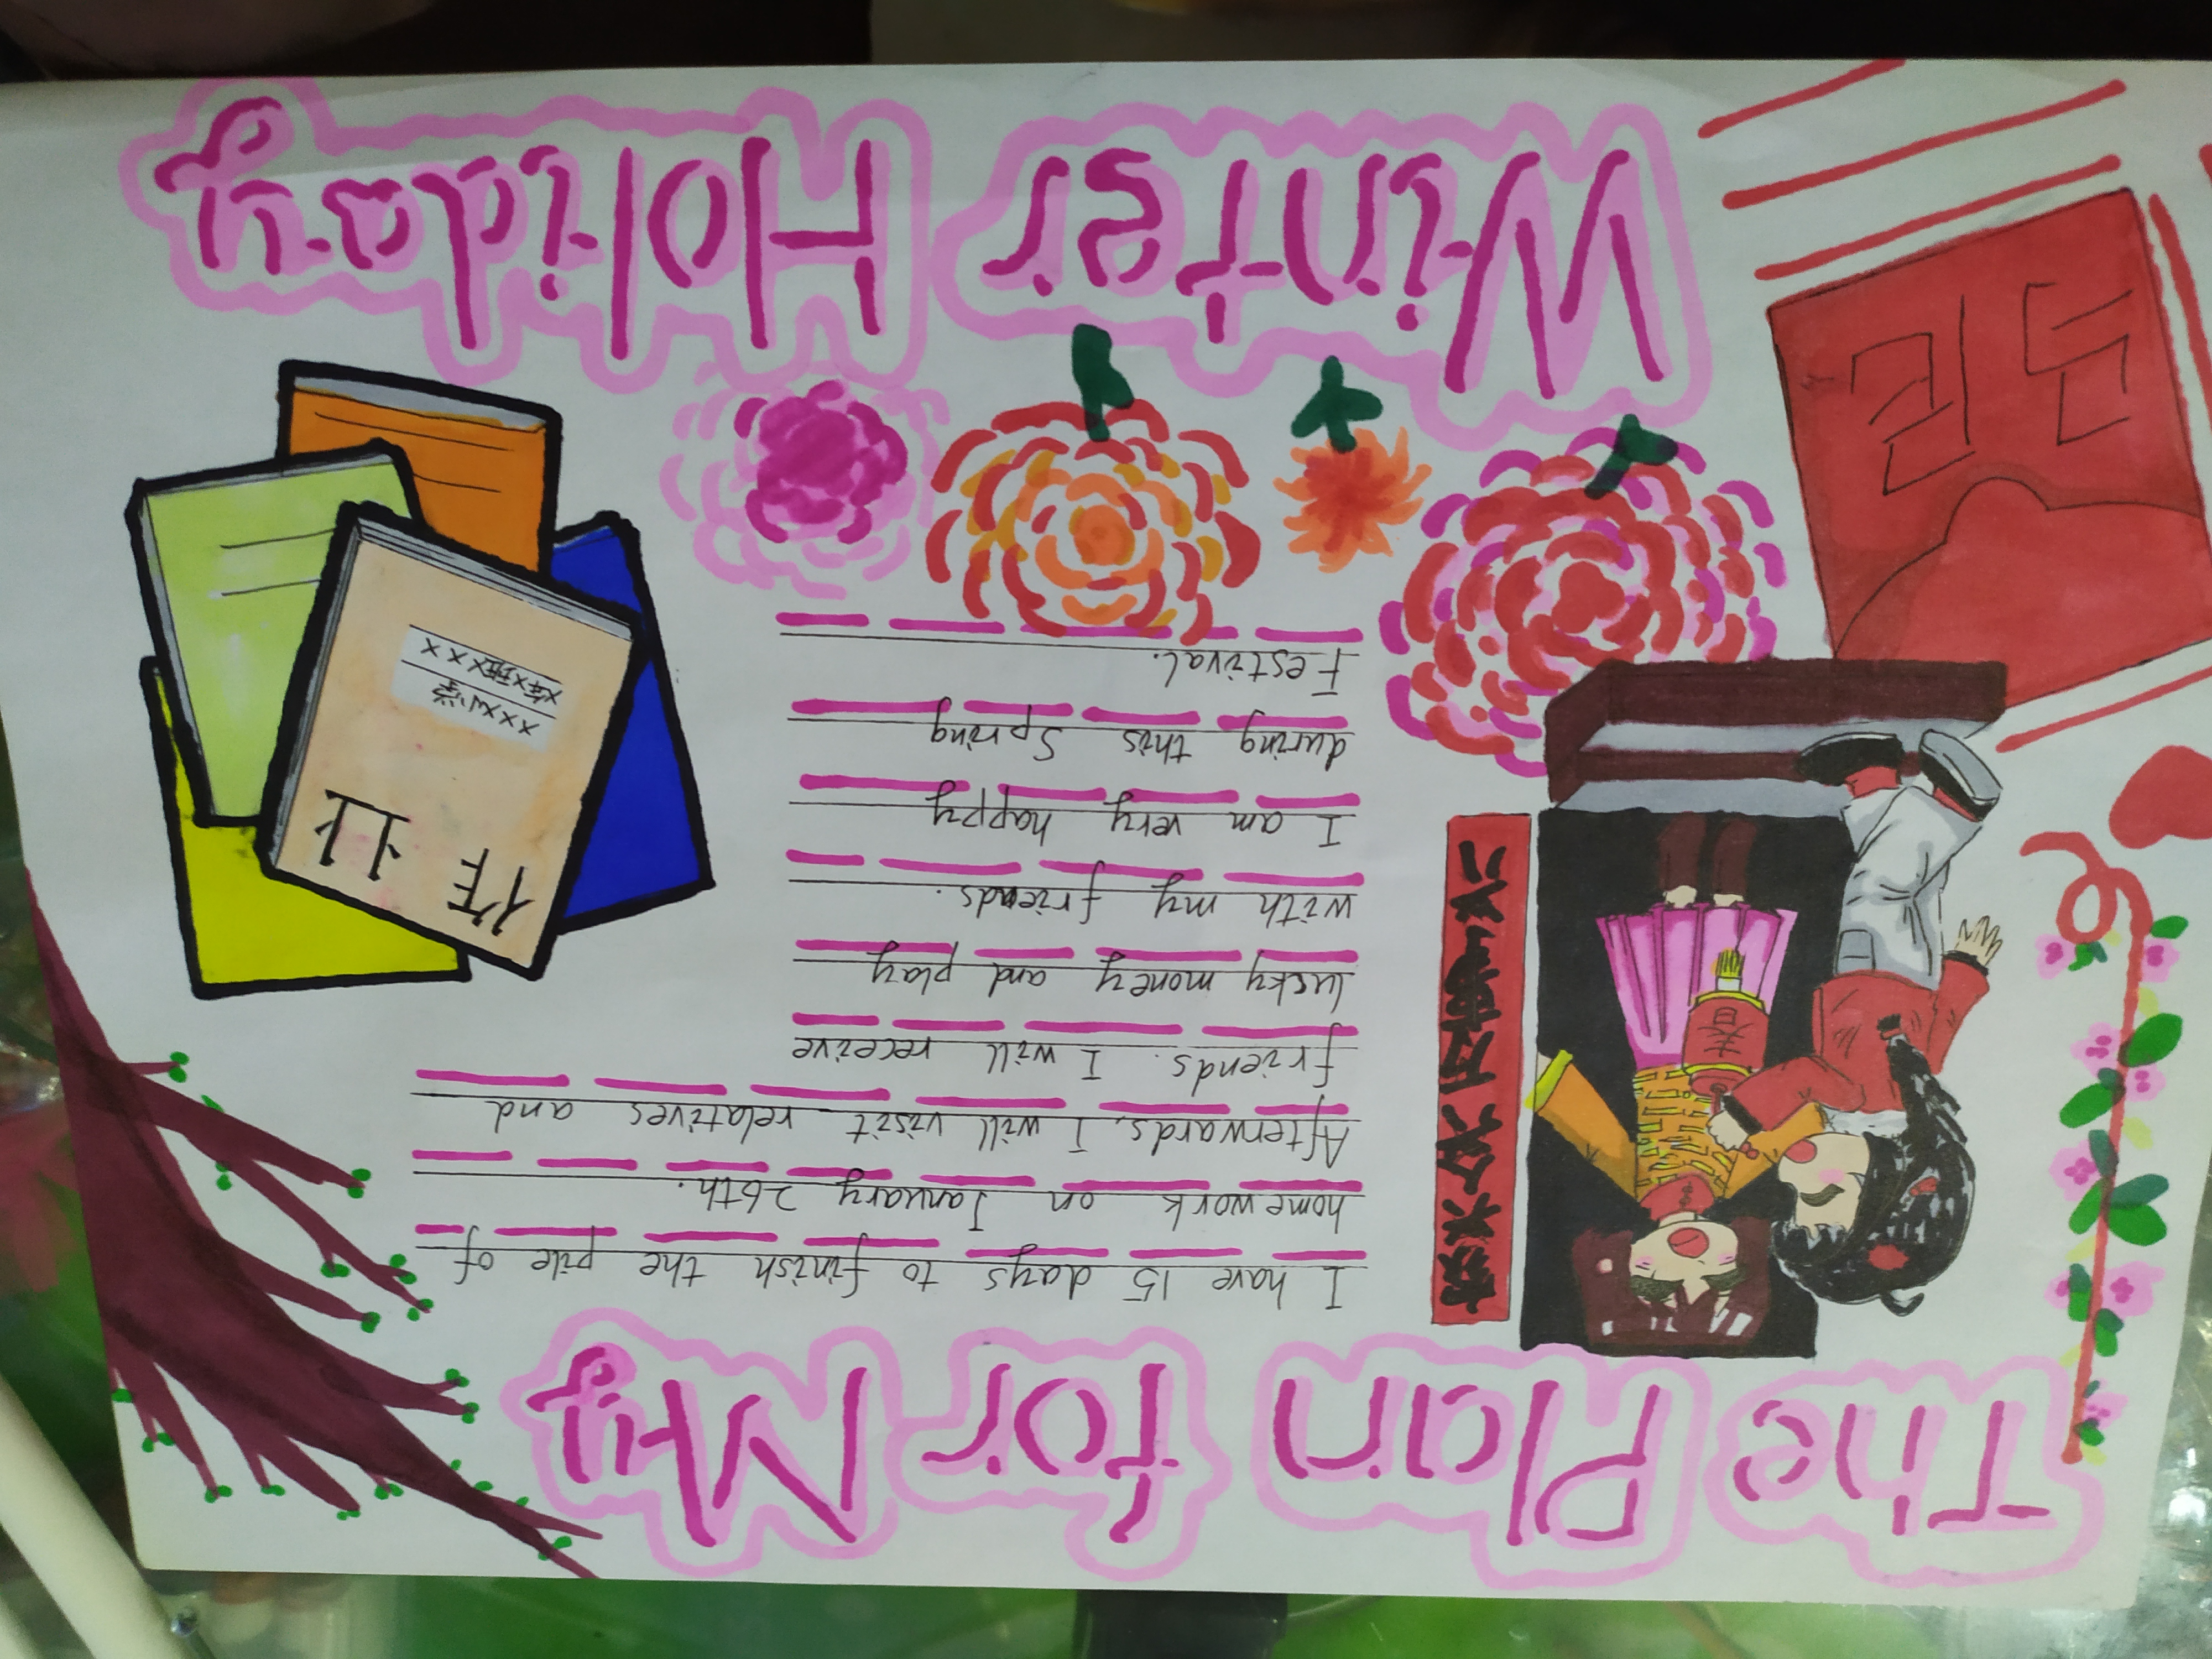 The Plan for My
家兴人兴万事兴
春
I have 15 days to finish the pile of
homework on January 26th.
Afterwards, I will visit relatives and
friends. I will receive
lucky money and play
with my friends.
I am very happy
during this Spring
Festival.
作业
xxx小学
x年x班xxx
马
Winter Holiday